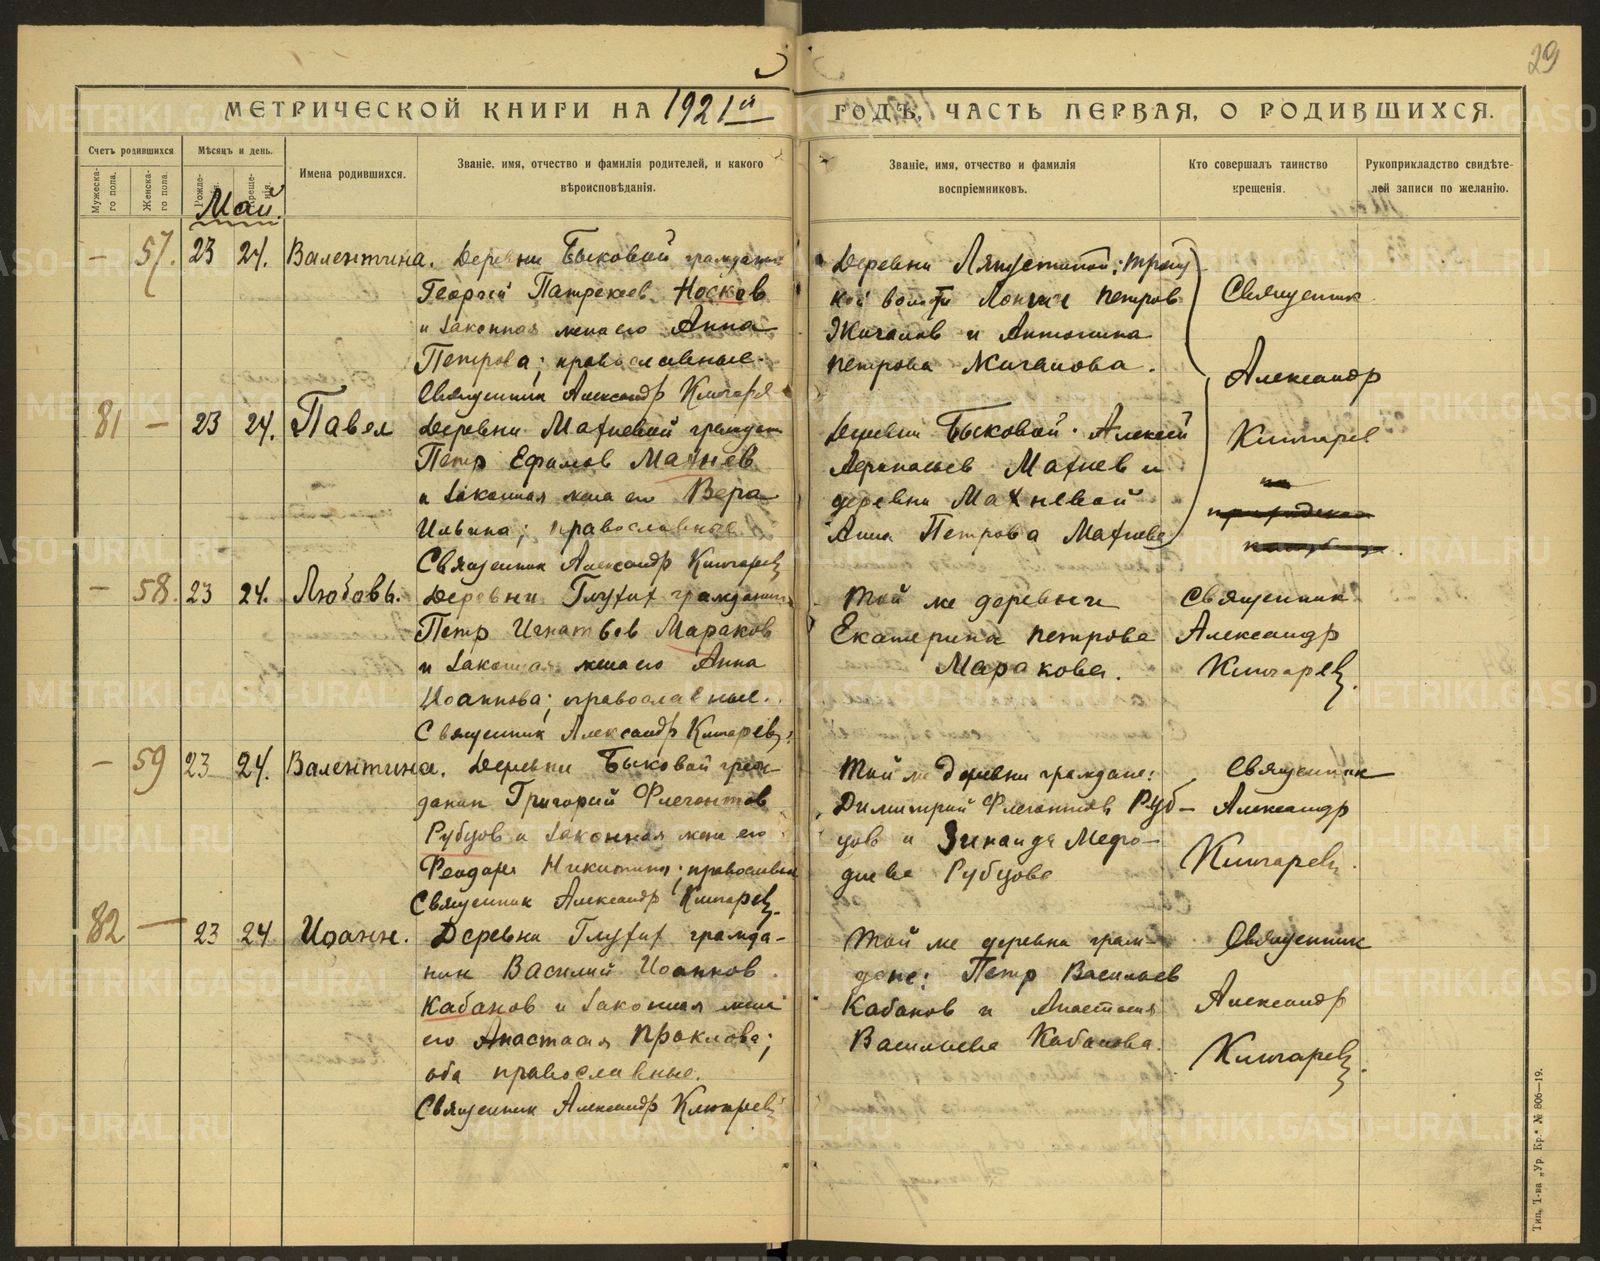 29
МЕТРИЧЕСКОЙ КНИГИ НА 1921й ГОДЪ, ЧАСТЬ ПЕРВАЯ, О РОДИВШИХСЯ.
Счетъ родившихся
Мужеска-
го пола.
Женска-
го пола.
Мѣсяцъ и день.
Рожде-
Креще-
нія.
Май.
Имена родившихся.
Званіе, имя, отчество и фамилія родителей, и какого
вѣроисповѣданія.
Званіе, имя, отчество и фамилія
воспріемниковъ.
Кто совершалъ таинство
крещенія.
Рукоприкладство свидѣте-
лей записи по желанію.
— 57. 23 24. Валентина.
Деревни Быковой
Георгий Носков
и законная жена его Анна
Петрова; православные.
Священник Александр Ключарев
Деревни
Петров
и Антонина
Петрова
Священник
Александр
Ключарев
81 — 23 24. Павел
Деревни Махневой
Петр Ефимов Махнев
и законная жена его Вера
Ильина; православные
Священник Александр Ключарев
Деревни Быковой. Алексей
Махнев и
деревни Махневой
Анна Петрова Махнева
— 58. 23 24. Любовь.
Деревни Глухих гражданин
Петр Игнатьев Мараков
и законная жена его Анна
Иоаннова; православные.
Священник Александр Ключарев.
Той же деревни
Екатерина Петрова
Маракова.
Священник
Александр
Ключарев.
— 59 23 24. Валентина.
Деревни Быковой граж-
данин Григорий Флегонтов
Рубцов и законная жена его
Феодора Никитина; православные
Священник Александр Ключарев.
Той же деревни граждане:
Димитрий Флегонтов Руб-
цов и Зинаида Мефо-
диева Рубцова
Священник
Александр
Ключарев.
82 — 23 24 Иоанн.
Деревни Глухих гражда-
нин Василий Иоаннов
Кабанов и законная жена
его Анастасия Проклова;
оба православные.
Священник Александр Ключарев
Той же деревни граж-
дане: Петр Васильев
Кабанов и Анастасия
Васильева Кабанова.
Священник
Александр
Ключарев.
Тип. Т-ва „Ур. Кр.“ № 806—19.
METRIKI.GASO-URAL.RU